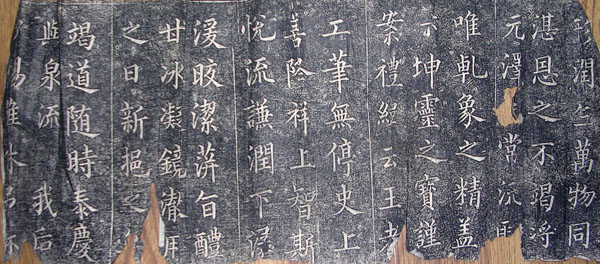 潤生萬物同
湛恩之不竭將
元澤常流
唯乹象之精蓋
亦坤靈之寶謹
案禮緯云王者
工筆無停史上
善降祥上智斯
悅流謙潤下潺
湲皎潔蓱旨醴
甘冰凝鏡澈用
之日新挹之
竭道随時泰慶
與泉流我后
惕雖休弗休